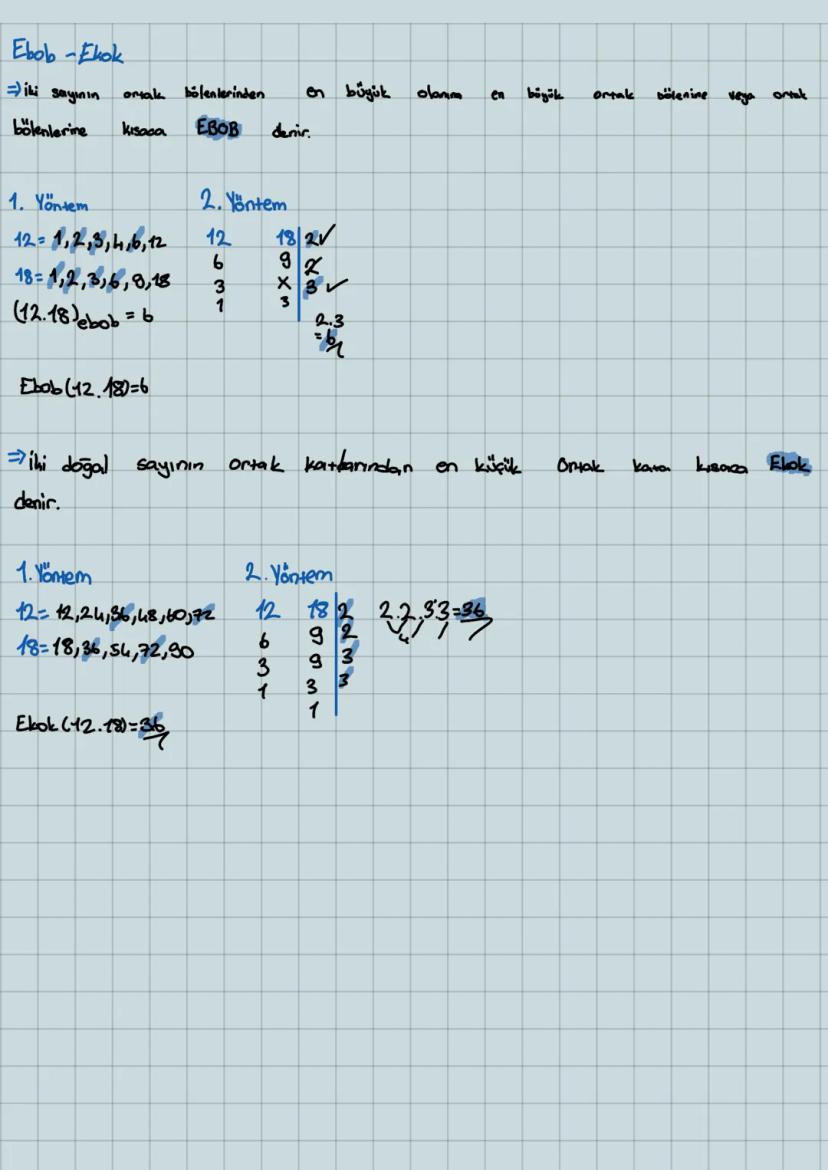 Ebob - Ekok
⇒ iki sayının ortak bölenlerinden en büyük olanına en büyük ortak bölenine veya ortak
bölenlerine kısaca EBOB denir.
1. Yöntem
12 = 1,2,3,4,6,12
18 = 1,2,3,6,9,18
(12.18)ebob = 6
Ebob(12.18)=6
2. Yöntem
12 18 | 2 ✓
6 9 | 2
3 x | 3 ✓
1 3
2.3
=6
⇒ iki doğal sayının ortak katlarından en küçük ortak katına kısaca Ekok
denir.
1. Yöntem
12= 12,24,36,48,60,72
18=18,36,54,72,90
Ekok(12.18)=36
2. Yöntem
12 18 | 2 2.2.3.3=36
6 9 | 2
3 9 | 3
1 3 | 3
1
4